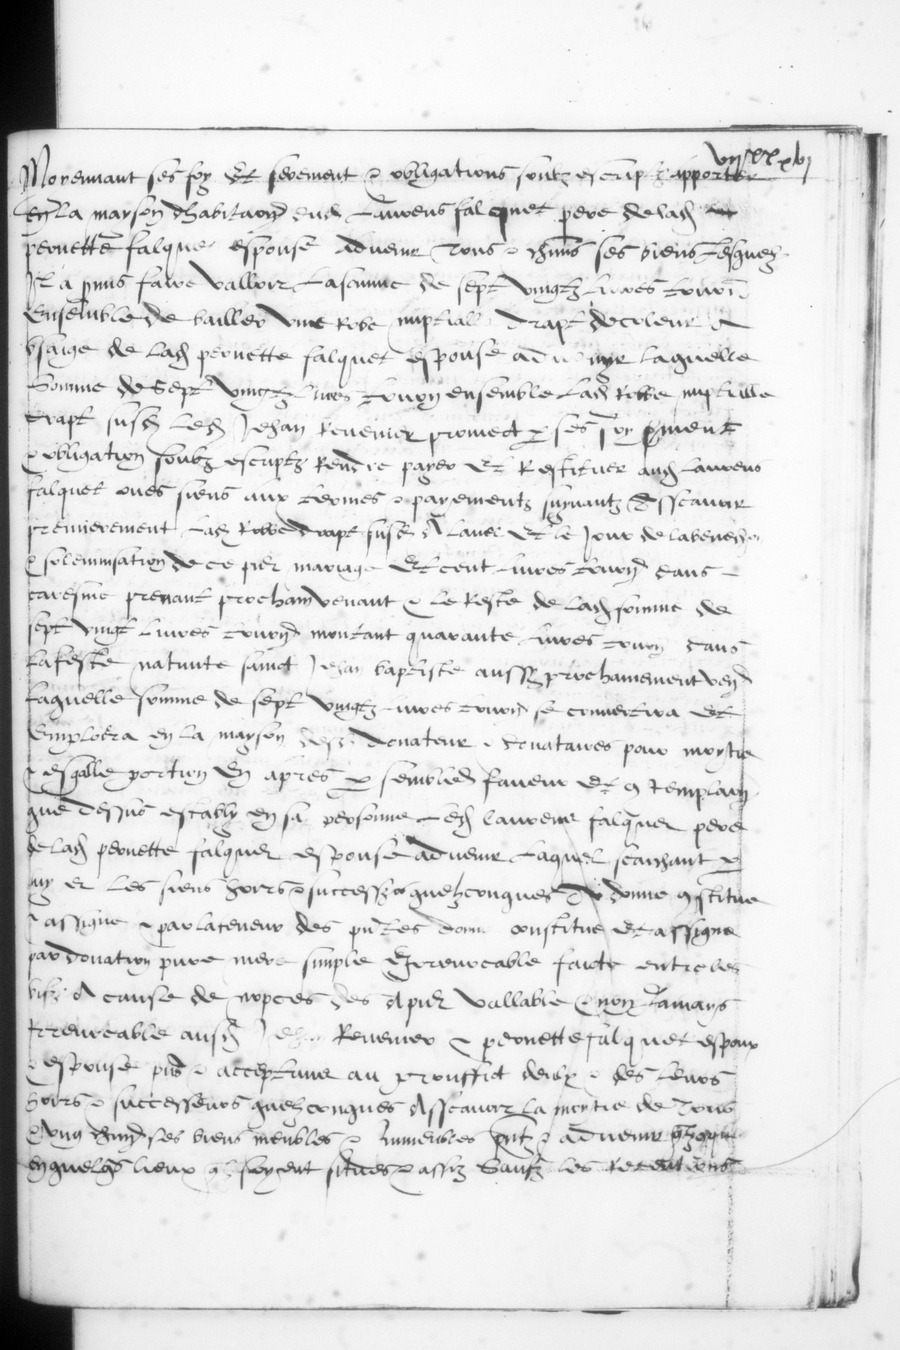 vijxx xvj
Moyennant ses foy et serement & obligations soubz escriptz apporter
En la mayson d'habitaon dud Laurens falquet pere de lad
pernette falquet espouse advenir tous & chuns ses biens lesquelz
Il a pmis faire valloir la somme de sept vingtz livres tourn
Ensemble de bailler une robe nuptiale drapt de coleur a
Usaige de lad pernette falquet espouse advenyr laquelle
Somme de Sept vingtz livres tourn ensemble lad Robbe nuptialle
drapt susd led Jehan Revenier promect p ses foy sment
& obligation soubz escriptz Rendre payer et Restituer aud Laurens
falquet ou es siens aux termes & payementz suyvantz Assavoir
premierement lad Robbe drapt susd A lavenir et le Jour de la bened
& solemnisation de ce pnt mariage et cent livres tourn dans
caresme prenant prochain venant & le Reste de lad somme de
sept vingt livres tourn montant quarante livres tourn dans
la feste nativite sainct Jehan baptiste aussy prochainement ven
laquelle somme de sept vingtz livres tourn se convertira et
Emploera en la mayson desd donateur & donataires pour moytie
& esgalle portion En apres p semblable faveur et contemplaon
que dessus estably en sa personne led Laurens falquet pere
de lad pernette falquet espouse advenir Lequel scaichant p
luy et les siens hoirs & successeurs quelzconques A donne constitue
& assigne & par la teneur des pntes donne constitue et assigne
par donation pure mere simple Irrevocable faicte entre les
vifz A cause de nopces des Apnt vallable & non Jamays
Irrevocable ausd Jehan Revenier & pernette falquet espoux
& espouse pns & acceptans au prouffict deulx & des leurs
hoirs & successeurs quelzconques Assavoir la moytie de Tous
& ungs chuns ses biens meubles & Immeubles pntz & advenir
en quelqs lieux qlz soyent situes & assiz Saufz les Retentions